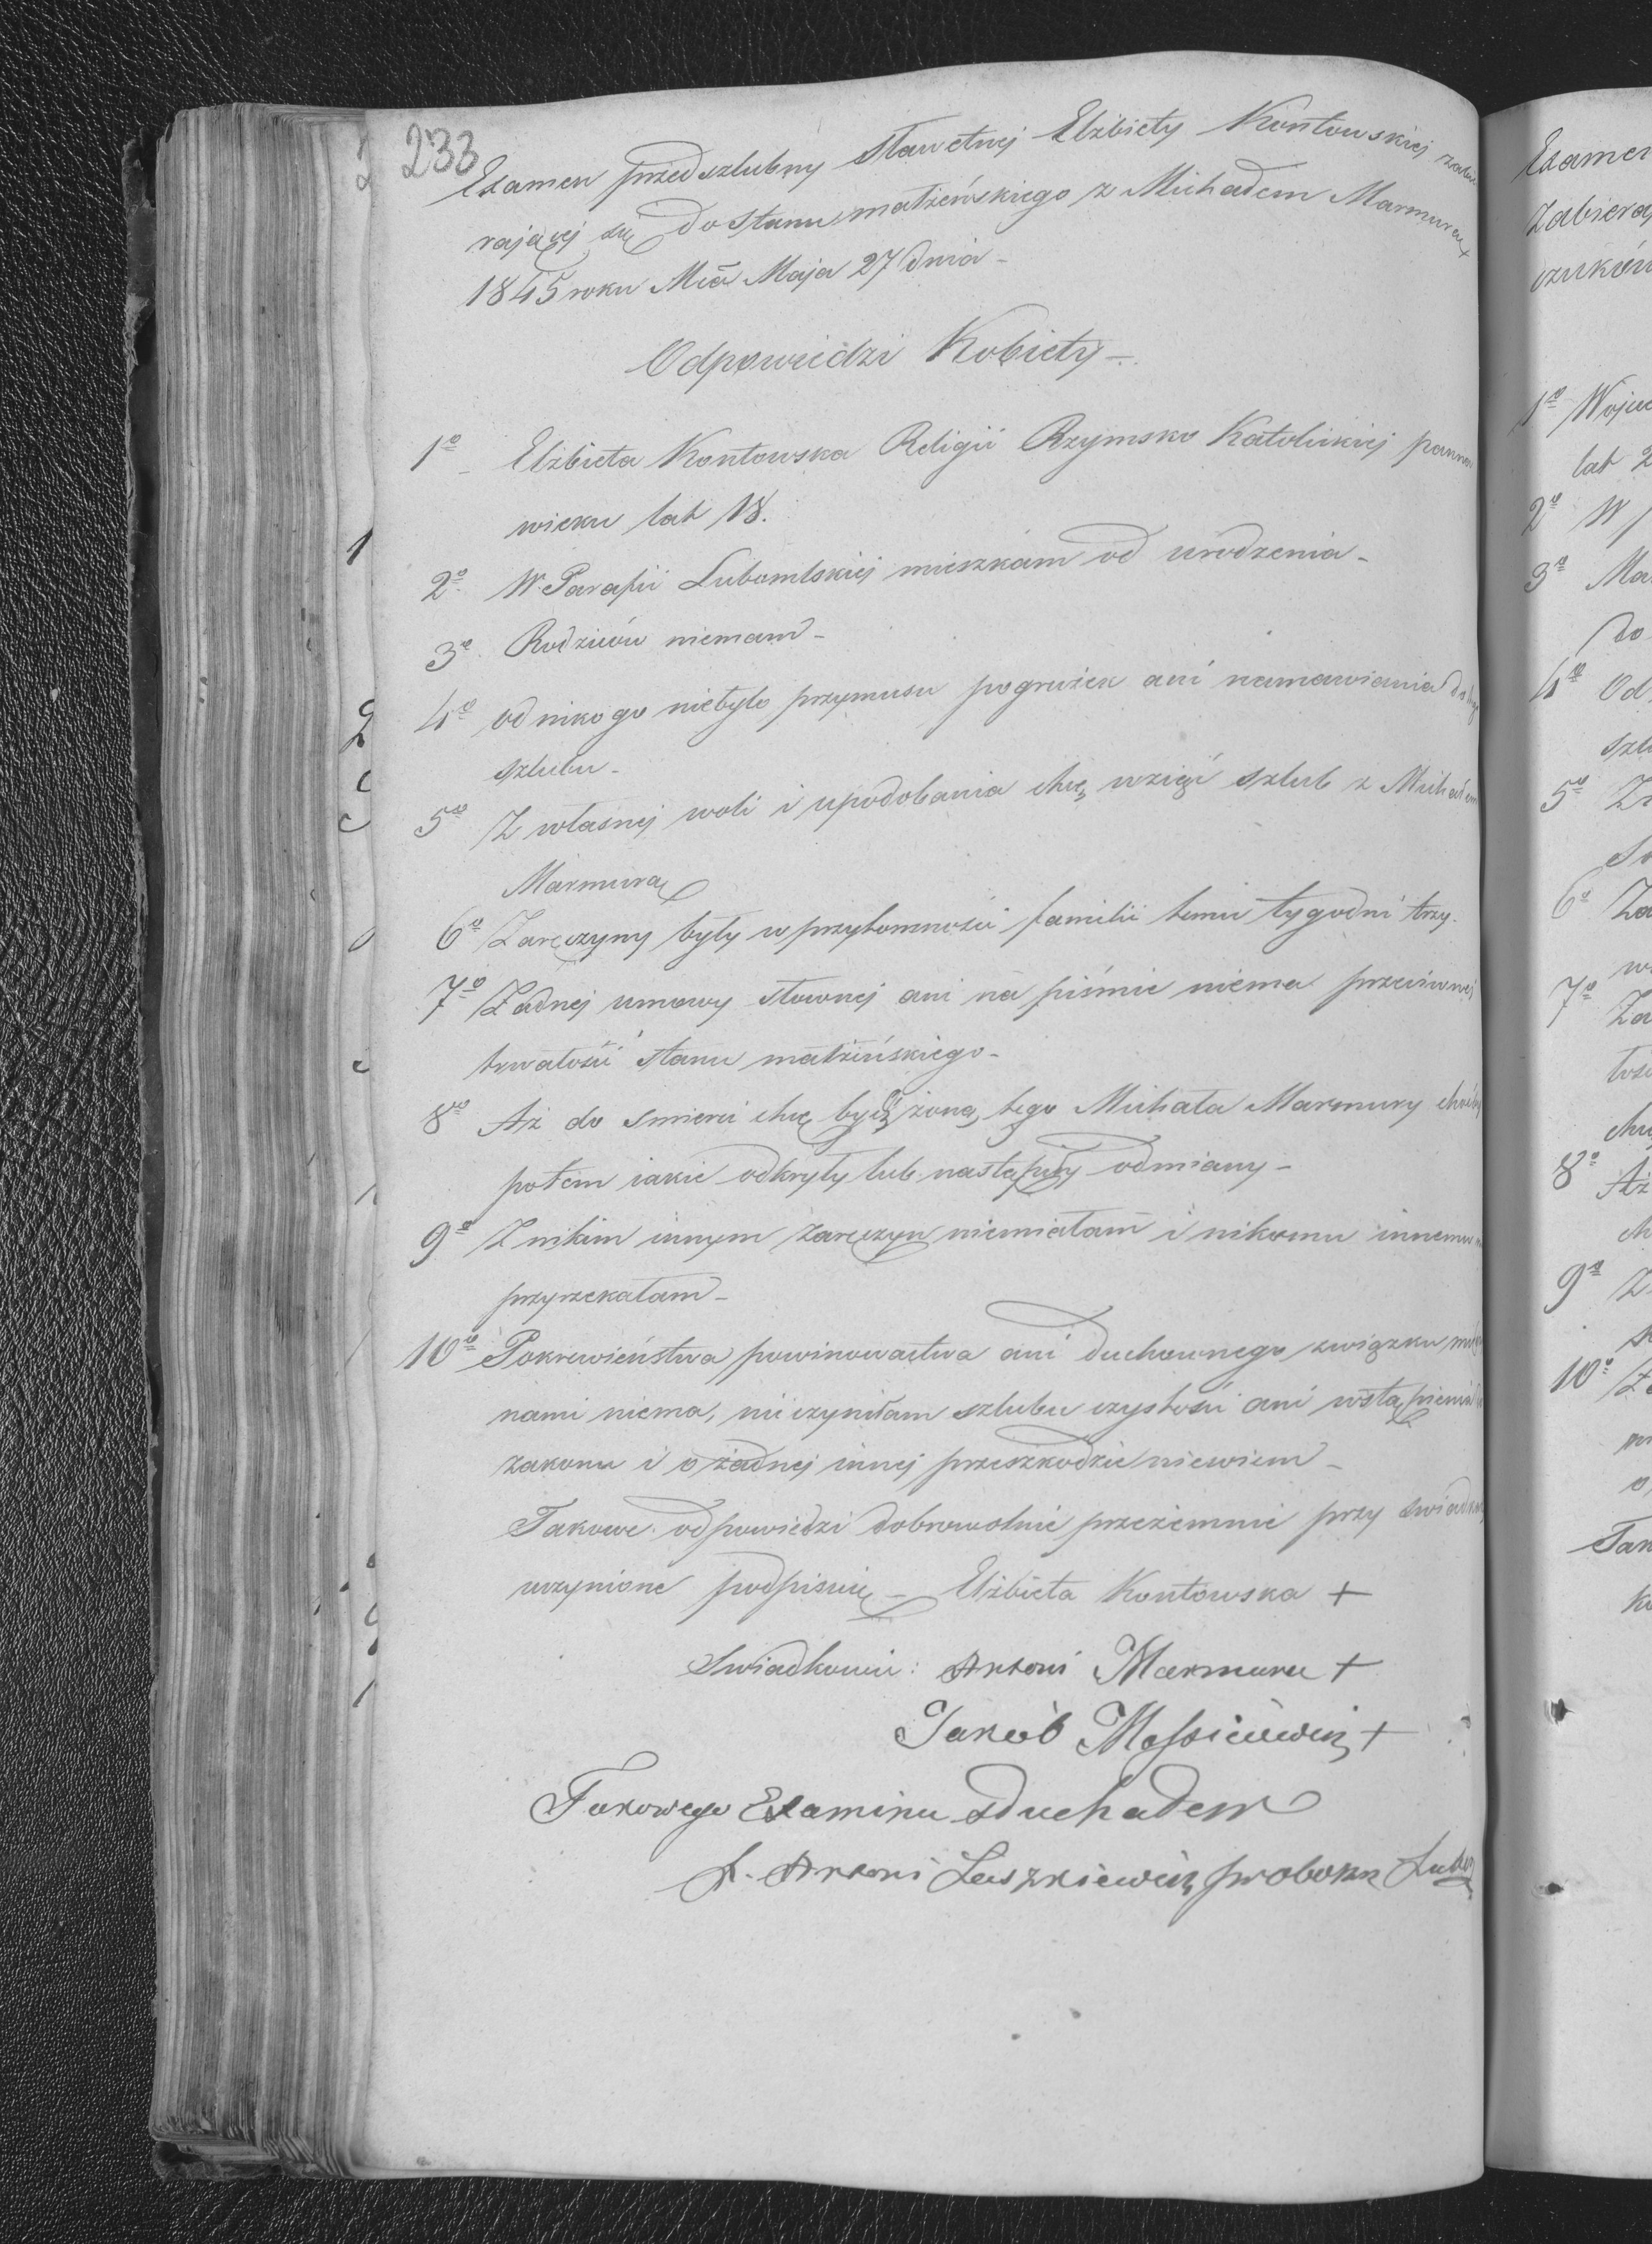 233
Examen przedszlubny Sławetnej Elżbiety Kontowskiej zabie
rającej się do stanu małżeńskiego z Michałem Marmurą
1845 roku Mca Maja 27 dnia -
Odpowiedzi Kobiety -
1º Elżbieta Kontowska Religii Rzymsko Katolickiej panna
wieku lat 18.
2º W Parafii Lubomlskiej mieszkam od urodzenia -
3º Rodziców niemam -
4º od nikogo niebyło przymusu pogróżek ani namawiania do tego
szlubu -
5º Z własnej woli i upodobania chcę wziąć szlub z Michałem
Marmurą
6º Zaręczyny były w przytomności familii temu tygodni trzy -
7º Żadnej umowy słownej ani na piśmie niema przeciwnej
trwałości stanu małżeńskiego -
8º Aż do smierci chcę być żoną tego Michała Marmury choćby
potem iakie odkryły lub nastąpiły odmiany -
9º Z nikim innym zaręczyn niemiałam i nikomu innemu
przyrzekałam -
10º Pokrewieństwa powinowactwa ani duchownego związku między
nami niema, nieczyniłam szlubu czystości ani wstąpienia
zakonu i o żadnej innej przeszkodzie niewiem -
Takowe odpowiedzi dobrowolnie przezemnie przy swiadkach
uczynione podpisuię - Elżbieta Kontowska +
Swiadkowie: Antoni Marmura +
Jakób +
Takowego Examinu słuchałem
X. Antoni Laszkiewicz proboszcz
Examen
Zabiera
1º Wojc
lat 2
2º W
3º Ma
do
4º Od
szlu
5º Z
6º Za
7º Ża
8º Aż
9º Z
10º
Tak